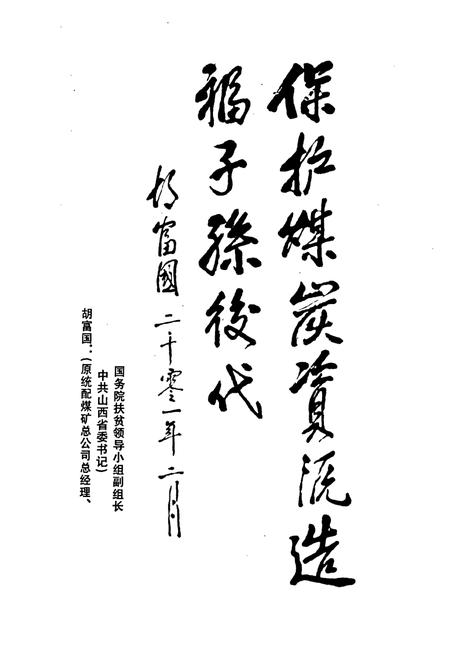 保护煤炭资源造
福子孫後代
胡富國 二千零一年二月
胡富国：（原统配煤矿总公司总经理、
中共山西省委书记）
国务院扶贫领导小组副组长